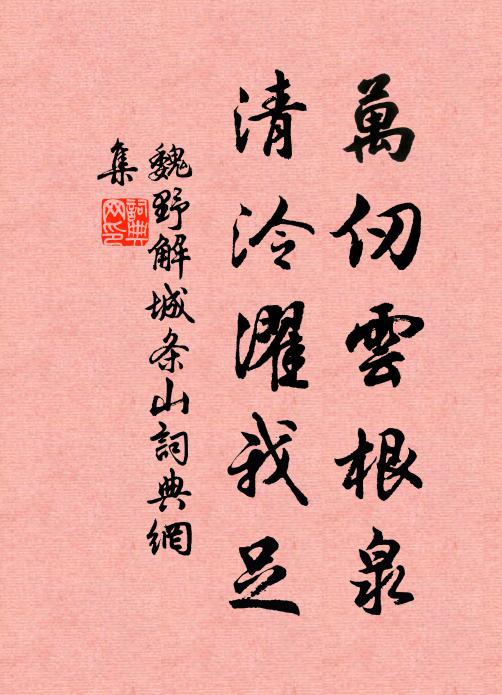 萬仞雲根泉
清泠濯我足
魏野解城条山詞典網
集
詞典
网印